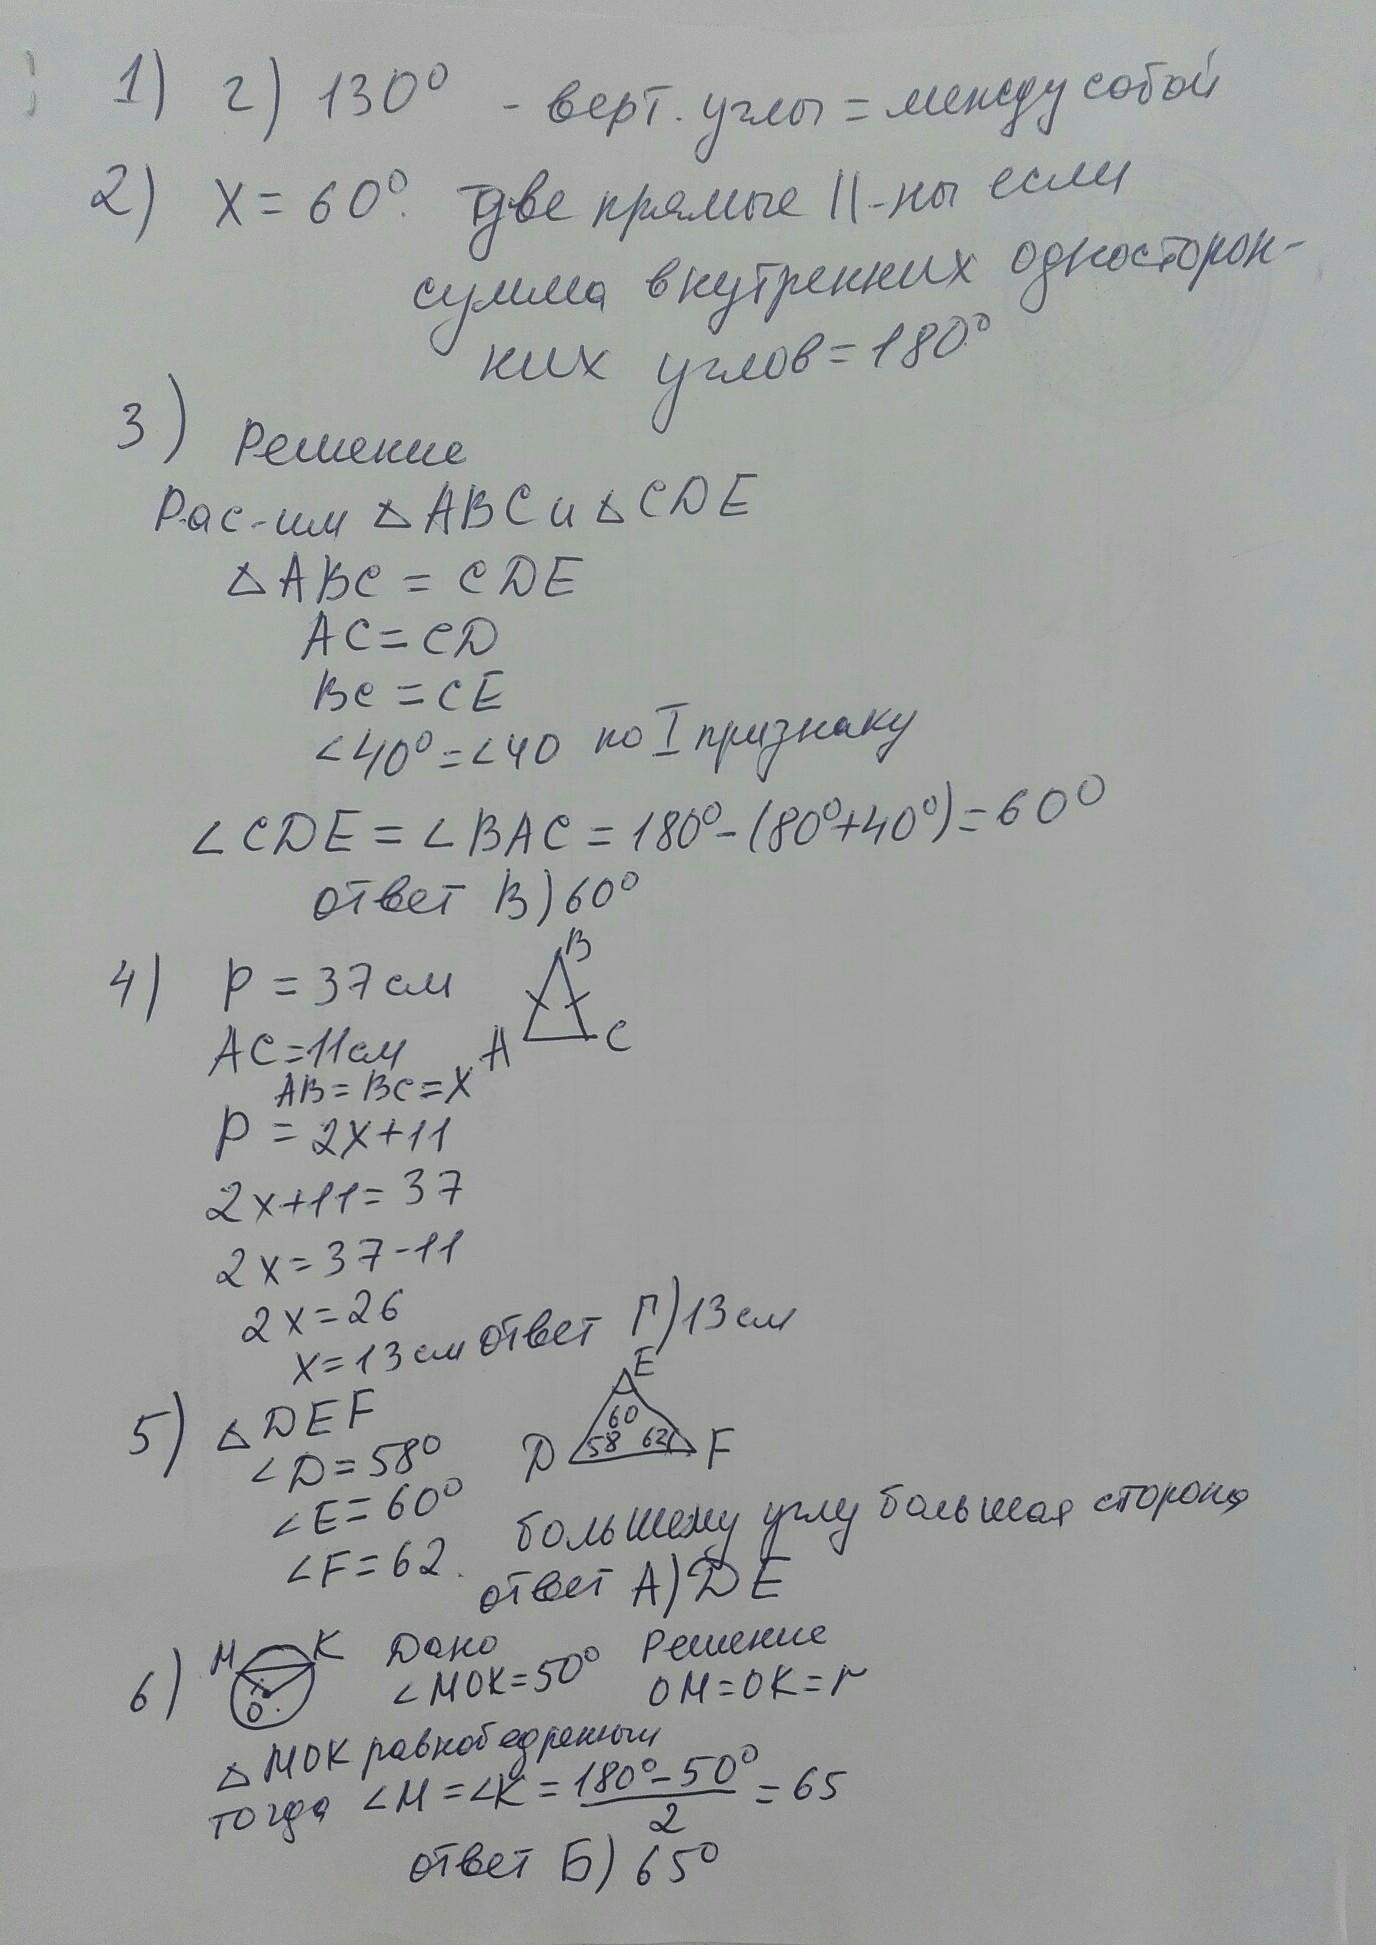 1) г) 130° - верт. углы = между собой
2) x = 60°. две прямые ||-ны если
сумма внутренних односторон-
них углов = 180°
3) Решение
Рас-им △ABC и △CDE
△ABC = CDE
AC = CD
BC = CE
∠40° = ∠40 по I признаку
∠CDE = ∠BAC = 180° - (80° + 40°) = 60°
ответ В) 60°
4) P = 37 см
B
AC = 11 см
A C
AB = BC = x
P = 2x + 11
2x + 11 = 37
2x = 37 - 11
2x = 26
x = 13 см ответ Г) 13 см
5) △DEF
E
60
∠D = 58°
D 58 62 F
∠E = 60°
большему углу большая сторона
∠F = 62.
ответ А) DE
6) M K Дано Решение
O ∠MOK = 50° OM = OK = r
△MOK равнобедренный
тогда ∠M = ∠K = 180° - 50° / 2 = 65
ответ Б) 65°